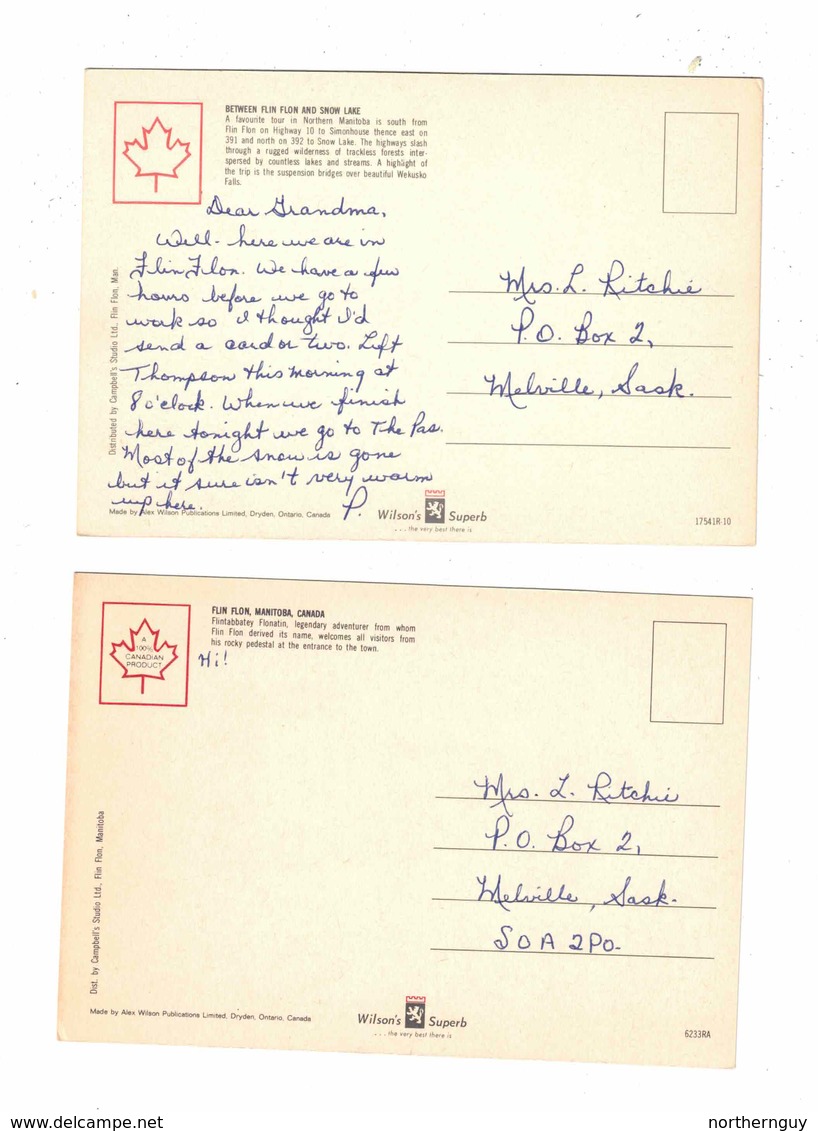 BETWEEN FLIN FLON AND SNOW LAKE
A favourite tour in Northern Manitoba is south from
Flin Flon on Highway 10 to Simonhouse thence east on
391 and north on 392 to Snow Lake. The highways slash
through a rugged wilderness of trackless forests inter-
spersed by countless lakes and streams. A highlight of
the trip is the suspension bridges over beautiful Wekusko
Falls.
Dear Grandma,
Well- here we are in
Flin Flon. We have a few
hours before we go to
work so I thought I'd
send a card or two. Left
Thompson this morning at
8 o'clock. When we finish
here tonight we go to The Pas.
Most of the snow is gone
but it sure isn't very warm
up here. P.
Mrs. L. Ritchie
P.O. Box 2,
Melville, Sask.
Distributed by Campbell's Studio Ltd., Flin Flon, Man.
Made by Alex Wilson Publications Limited, Dryden, Ontario, Canada
Wilson's Superb
... the very best there is
17541R-10
A
100%
CANADIAN
PRODUCT
FLIN FLON, MANITOBA, CANADA
Flintabbatey Flonatin, legendary adventurer from whom
Flin Flon derived its name, welcomes all visitors from
his rocky pedestal at the entrance to the town.
Hi!
Mrs. L. Ritchie
P.O. Box 2,
Melville, Sask.
S0A 2P0.
Dist. by Campbell's Studio Ltd., Flin Flon, Manitoba
Made by Alex Wilson Publications Limited, Dryden, Ontario, Canada
Wilson's Superb
... the very best there is
6233RA
delcampe.net
northernguy